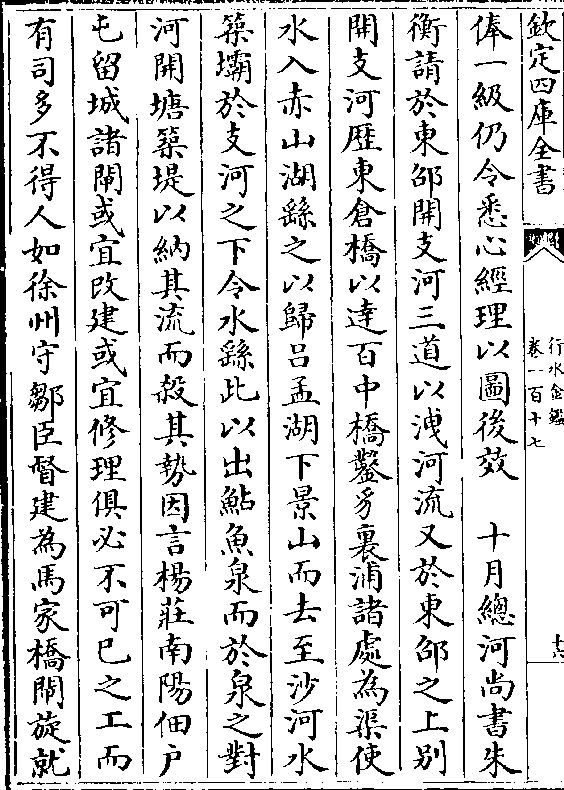 欽定四庫全書
行水金鑑
卷一百十七
俸一級仍令悉心經理以圖後效　十月總河尚書朱
衡請於東邵開支河三道以洩河流又於東邵之上別
開支河歴東倉橋以逹百中橋鑿豸裏浦諸處為渠使
水入赤山湖繇之以歸吕孟湖下景山而去至沙河水
築壩於支河之下令水繇此以出鮎魚泉而於泉之對
河開塘築堤以納其流而殺其勢因言楊莊南陽佃户
屯留城諸閘或宜改建或宜修理俱必不可已之工而
有司多不得人如徐州守鄒臣督建為馬家橋閘旋就